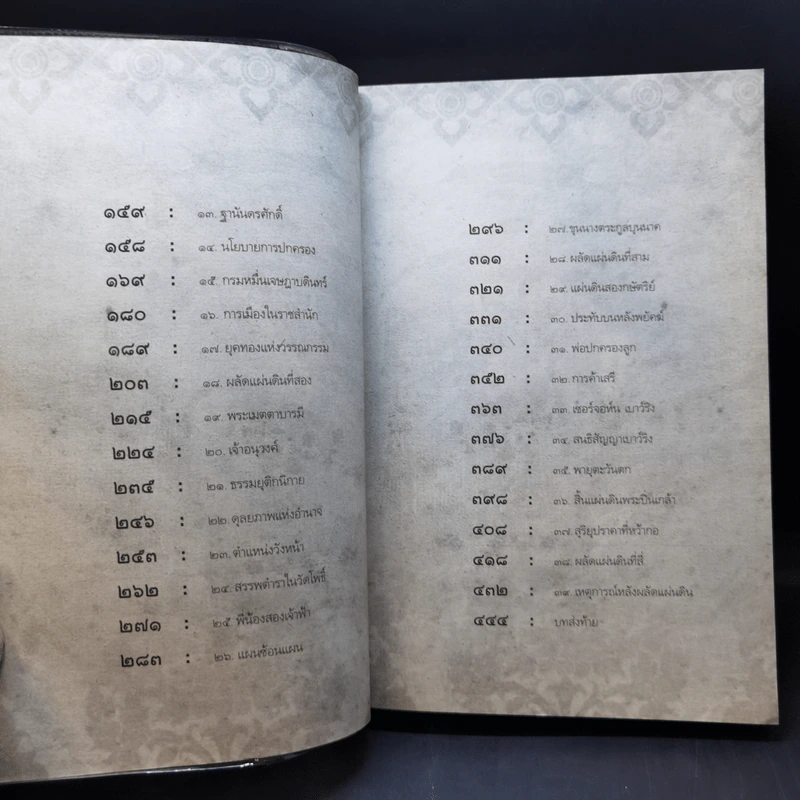 ๑๕๙ : ๑๓. ฐานันดรศักดิ์
๑๕๘ : ๑๔. นโยบายการปกครอง
๑๖๙ : ๑๕. กรมหมื่นเจษฎาบดินทร์
๑๘๐ : ๑๖. การเมืองในราชสำนัก
๑๘๙ : ๑๗. ยุคทองแห่งวรรณกรรม
๒๐๓ : ๑๘. ผลัดแผ่นดินที่สอง
๒๑๕ : ๑๙. พระเมตตาบารมี
๒๒๔ : ๒๐. เจ้าอนุวงศ์
๒๓๕ : ๒๑. ธรรมยุติกนิกาย
๒๔๖ : ๒๒. ดุลยภาพแห่งอำนาจ
๒๕๓ : ๒๓. ตำแหน่งวังหน้า
๒๖๒ : ๒๔. สรรพตำราในวัดโพธิ์
๒๗๑ : ๒๕. พี่น้องสองเจ้าฟ้า
๒๘๓ : ๒๖. แผนซ้อนแผน
๒๙๖ : ๒๗. ขุนนางตระกูลบุนนาค
๓๑๑ : ๒๘. ผลัดแผ่นดินที่สาม
๓๒๑ : ๒๙. แผ่นดินสองกษัตริย์
๓๓๑ : ๓๐. ประทับบนหลังพยัคฆ์
๓๔๐ : ๓๑. พ่อปกครองลูก
๓๕๒ : ๓๒. การค้าเสรี
๓๖๓ : ๓๓. เซอร์จอห์น เบาว์ริง
๓๗๖ : ๓๔. สนธิสัญญาเบาว์ริง
๓๘๙ : ๓๕. พายุตะวันตก
๓๙๘ : ๓๖. สิ้นแผ่นดินพระปิ่นเกล้า
๔๐๘ : ๓๗. สุริยุปราคาที่หว้ากอ
๔๑๘ : ๓๘. ผลัดแผ่นดินที่สี่
๔๓๒ : ๓๙. เหตุการณ์หลังผลัดแผ่นดิน
๔๔๔ : บทส่งท้าย